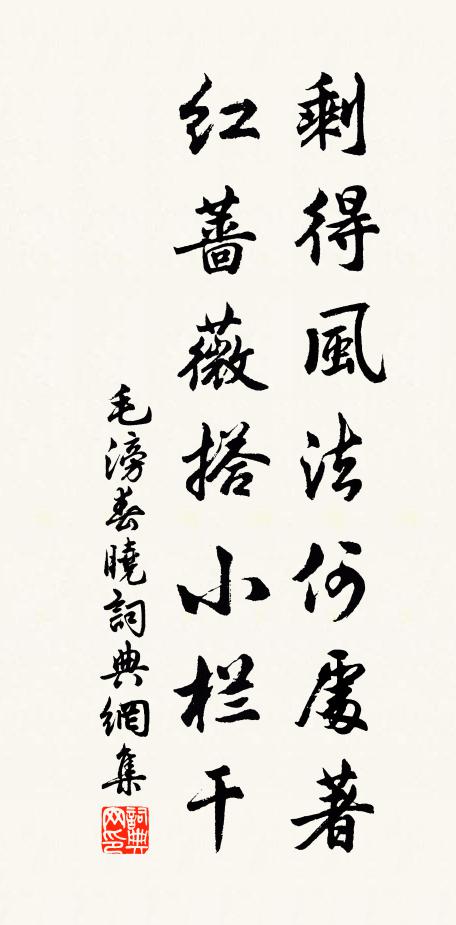 剩得風法何處著
紅薔薇搭小栏干
毛滂春曉詞典網集
詞典網印